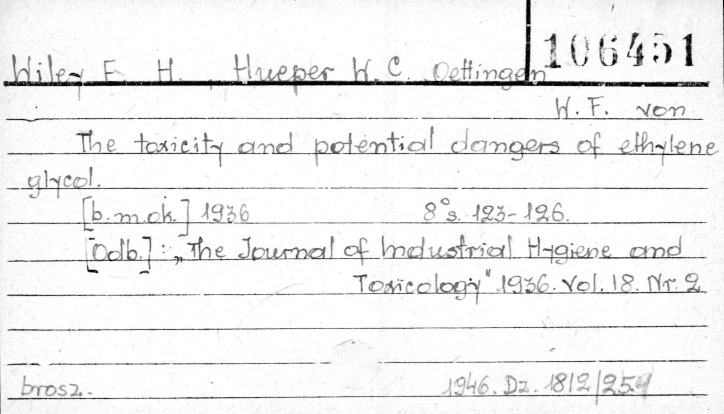 106451
Wiley F. H., Hueper W. C. Oettingen
W. F. von
The toxicity and potential dangers of ethylene
glycol.
[b.m.ok.] 1936 8° s. 123-126.
[Odb.]: „The Journal of Industrial Hygiene and
Toxicology" 1936. Vol. 18. Nr. 2
brosz. 1946. Dz. 1812/254